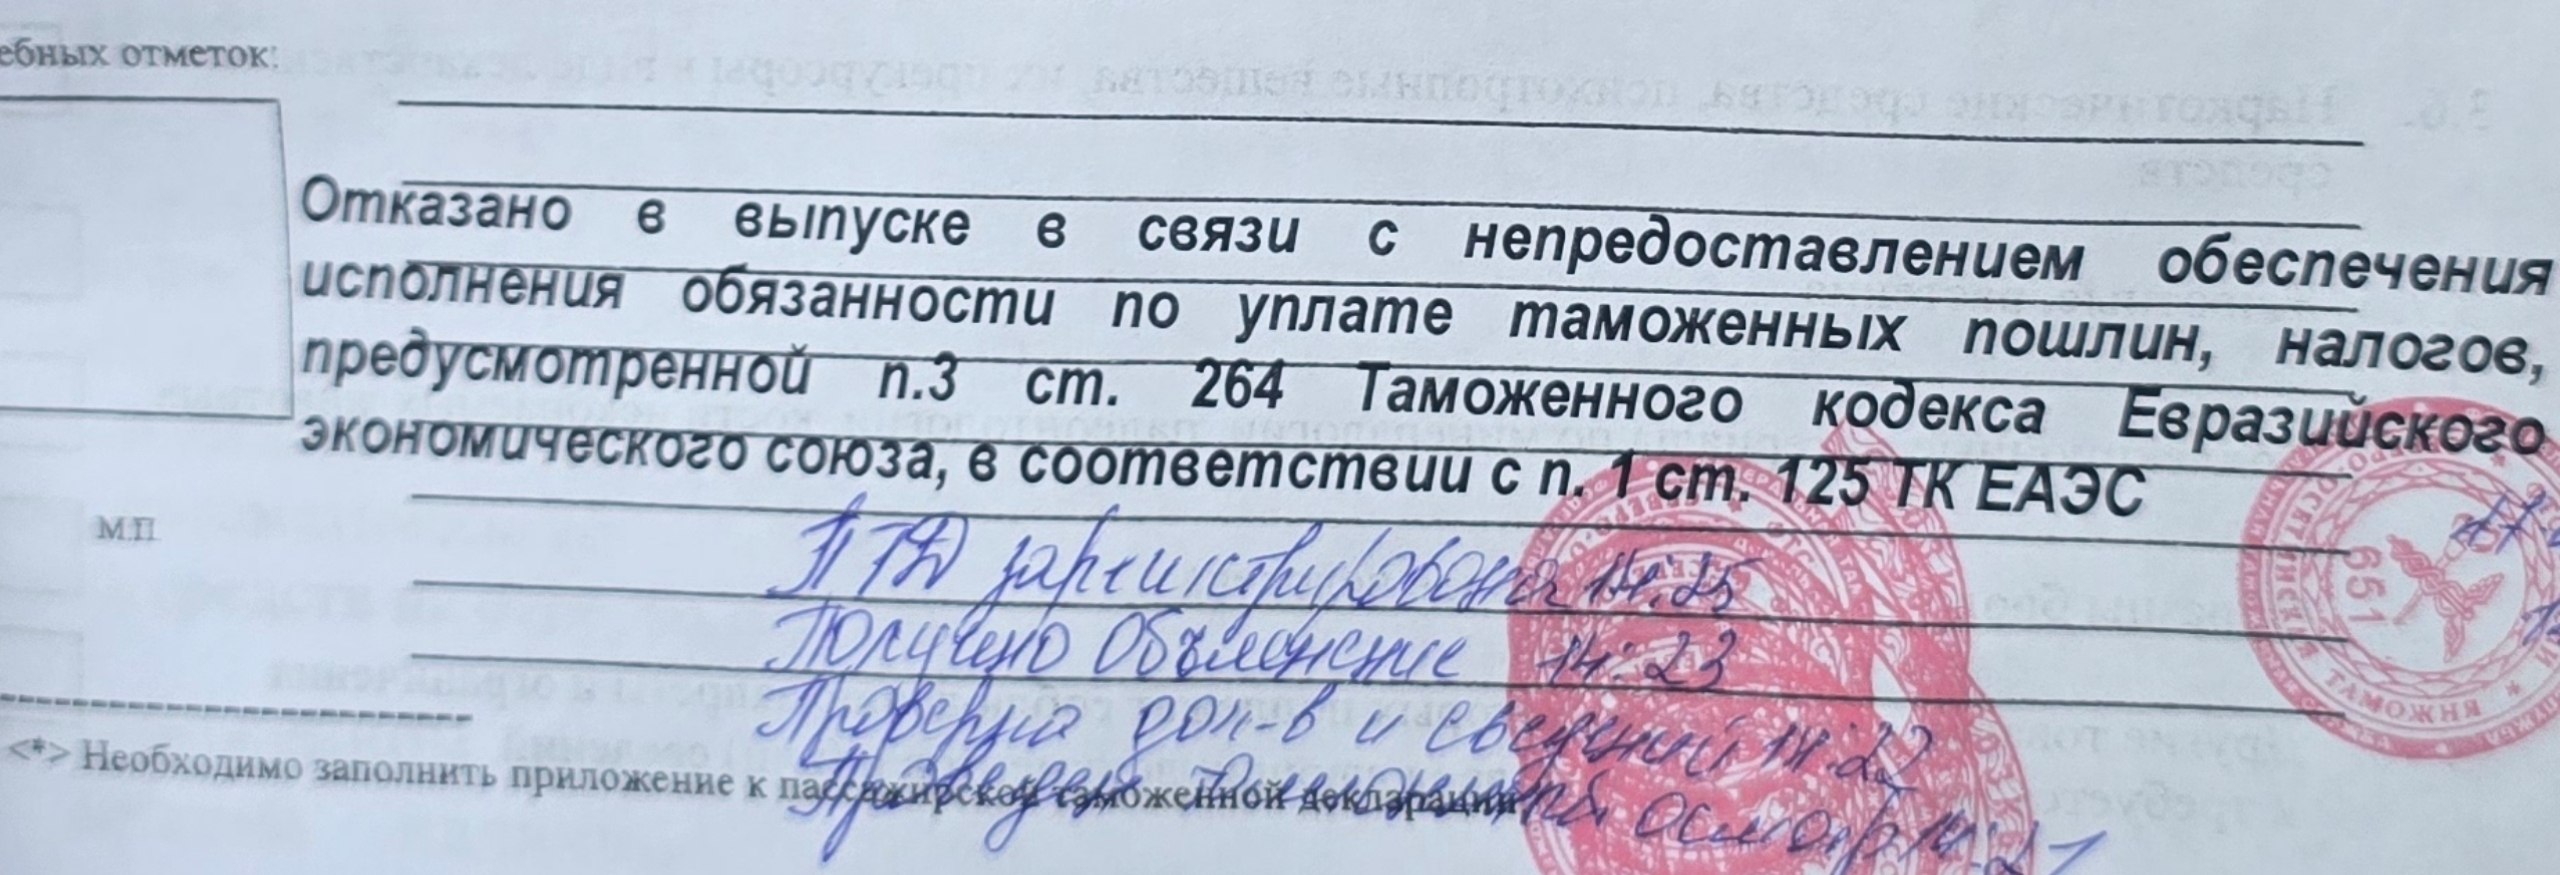 ебных отметок:
Отказано в выпуске в связи с непредоставлением обеспечения
исполнения обязанности по уплате таможенных пошлин, налогов,
предусмотренной п.3 ст. 264 Таможенного кодекса Евразийского
экономического союза, в соответствии с п. 1 ст. 125 ТК ЕАЭС
М.П.
ПТД зарегистрирована 14:25
Получено Объяснение 14:23
Проверка док-в и сведений 14:22
<*> Необходимо заполнить приложение к пассажирской таможенной декларации
Проведен таможенный осмотр 14:21
651
ТАМОЖНЯ